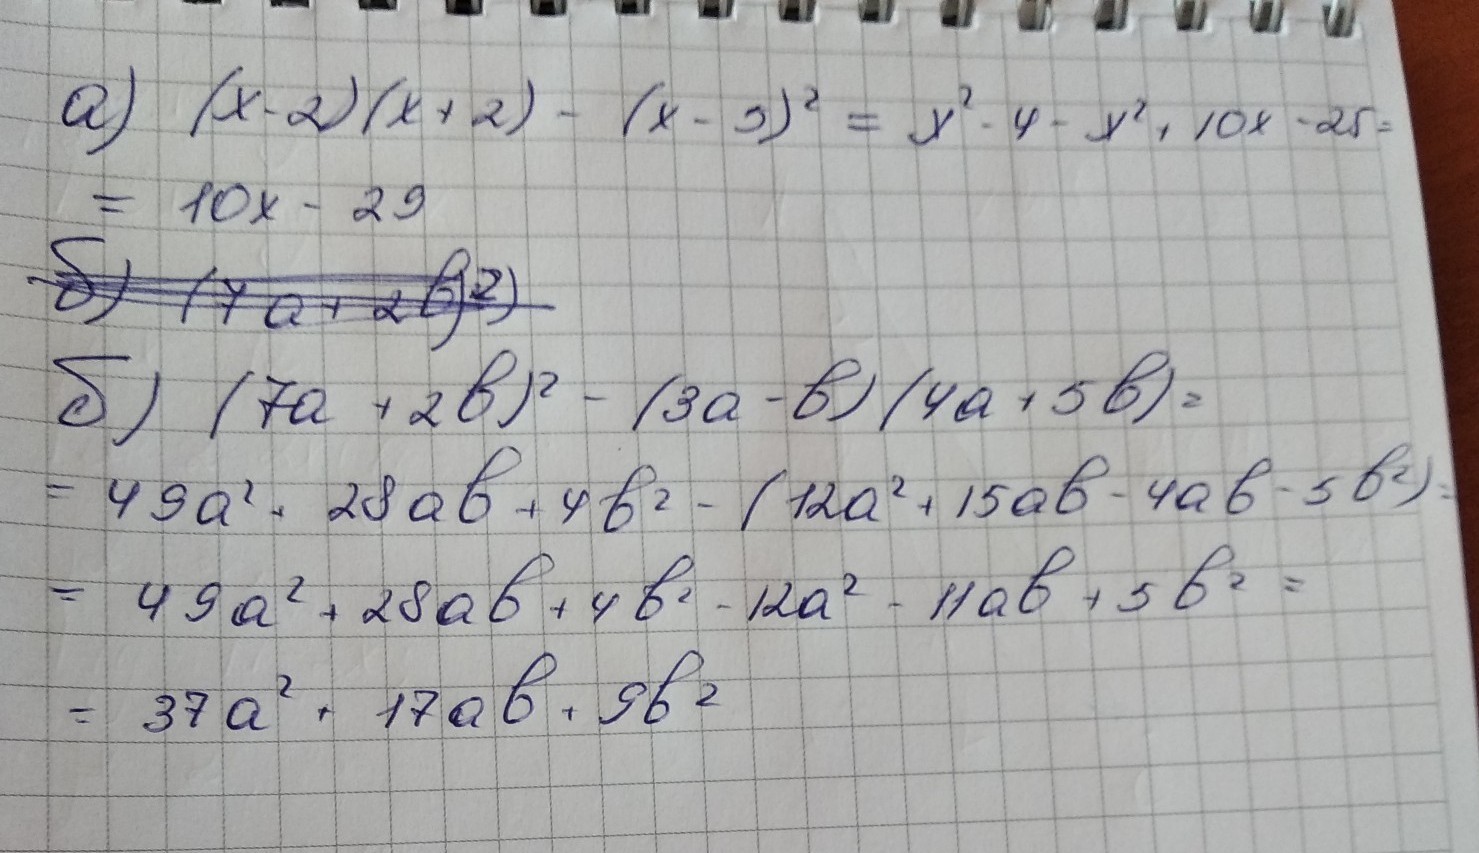 а) (x-2)(x+2) - (x-5)² = x² - 4 - x² + 10x - 25 =
= 10x - 29
б) (7a + 2b)²)
б) (7a + 2b)² - (3a - b)(4a + 5b) =
= 49a² + 28ab + 4b² - (12a² + 15ab - 4ab - 5b²) =
= 49a² + 28ab + 4b² - 12a² - 11ab + 5b² =
= 37a² + 17ab + 9b²